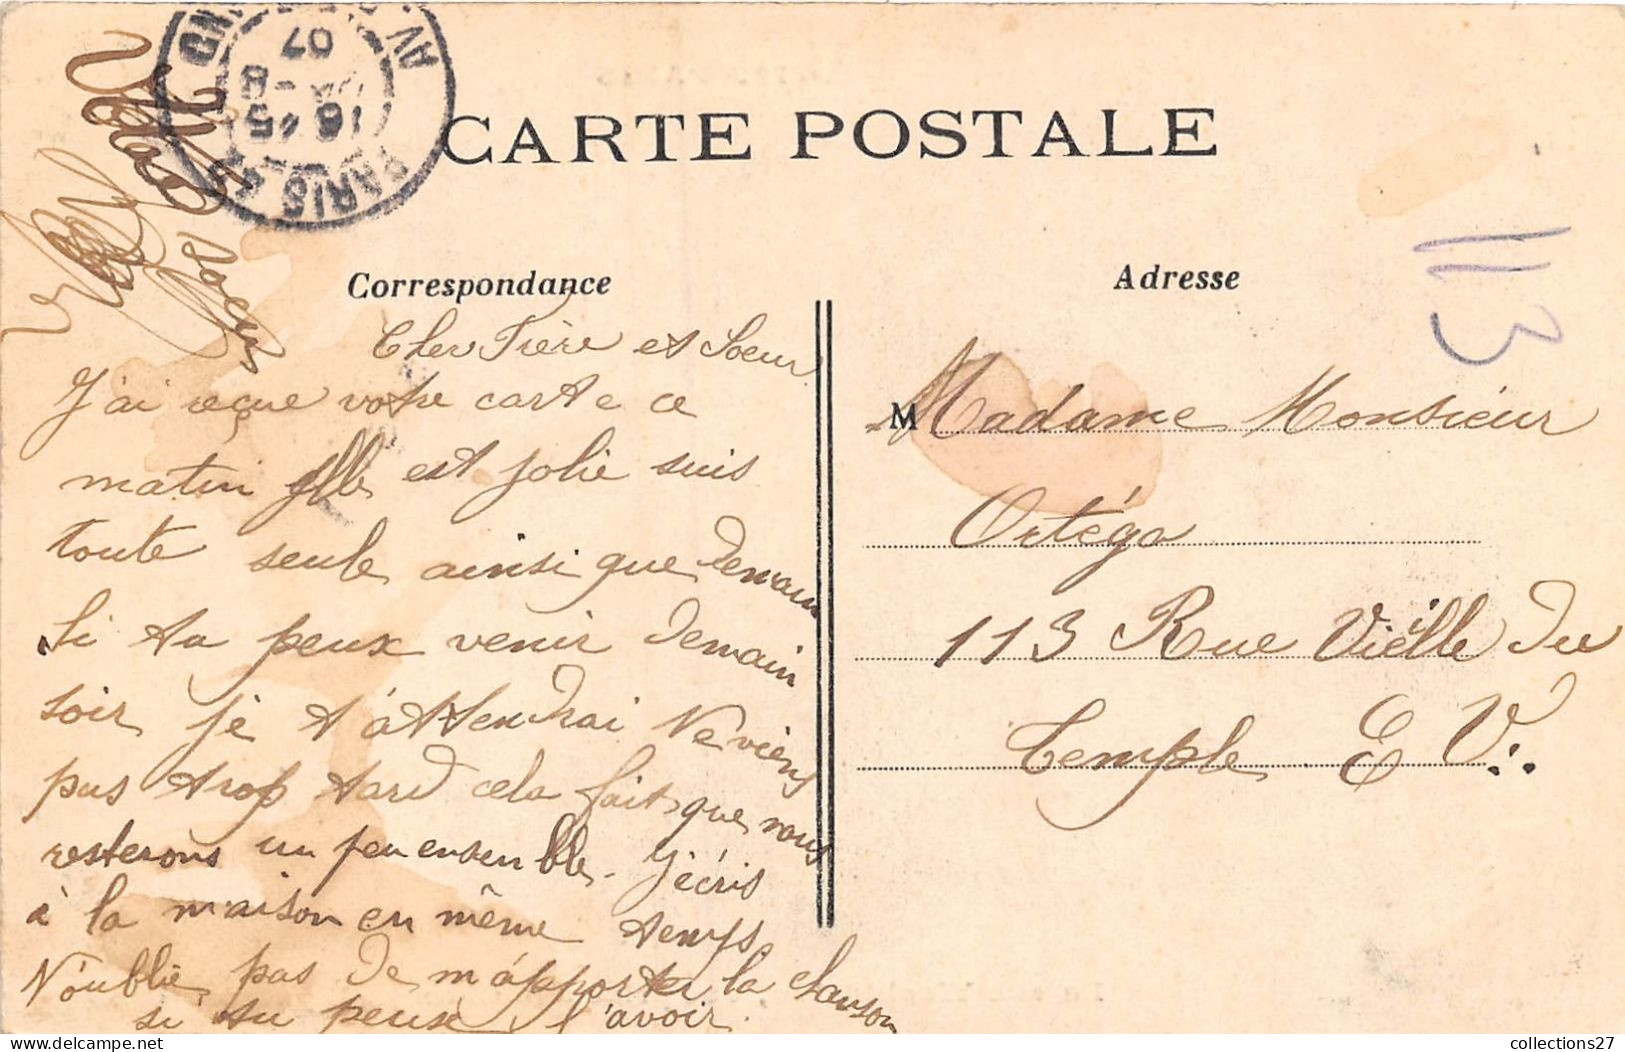 CARTE POSTALE
Correspondance
Adresse
113
Cher Frère et Soeur
J'ai reçue votre carte ce
matin elle est jolie suis
toute seule ainsi que demain
Si tu peux venir demain
soir je t'attendrai Ne viens
pas trop tard cela fait que nous
resterons un peu ensemble. J'écris
à la maison en même temps
N'oublie pas de m'apporter la chanson
si tu peux l'avoir.
Votre
soeur
M Madame Monsieur
Ortéga
113 Rue Vieille du
Temple E V.
PARIS
16 45
8 -8
07
collections27